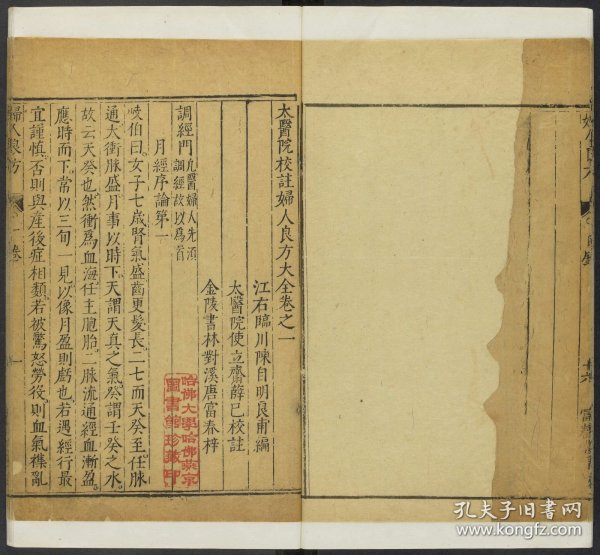 太醫院校註婦人良方大全卷之一
江右臨川陳自明良甫編
太醫院使立齋薛己校註
金陵書林對溪唐富春梓
調經門凡醫婦人先須
調經故以爲首
月經序論第一
岐伯曰女子七歲腎氣盛齒更髮長二七而天癸至任脉
通太衝脉盛月事以時下天謂天真之氣癸謂壬癸之水
故云天癸也然衝爲血海任主胞胎二脉流通經血漸盈
應時而下常以三旬一見以像月盈則虧也若遇經行最
宜謹慎否則與産後症相類若被驚怒勞役則血氣襍亂
婦人良方
一卷
一
哈佛大學哈佛燕京
圖書館珍藏印
孔夫子旧书网
www.kongfz.com